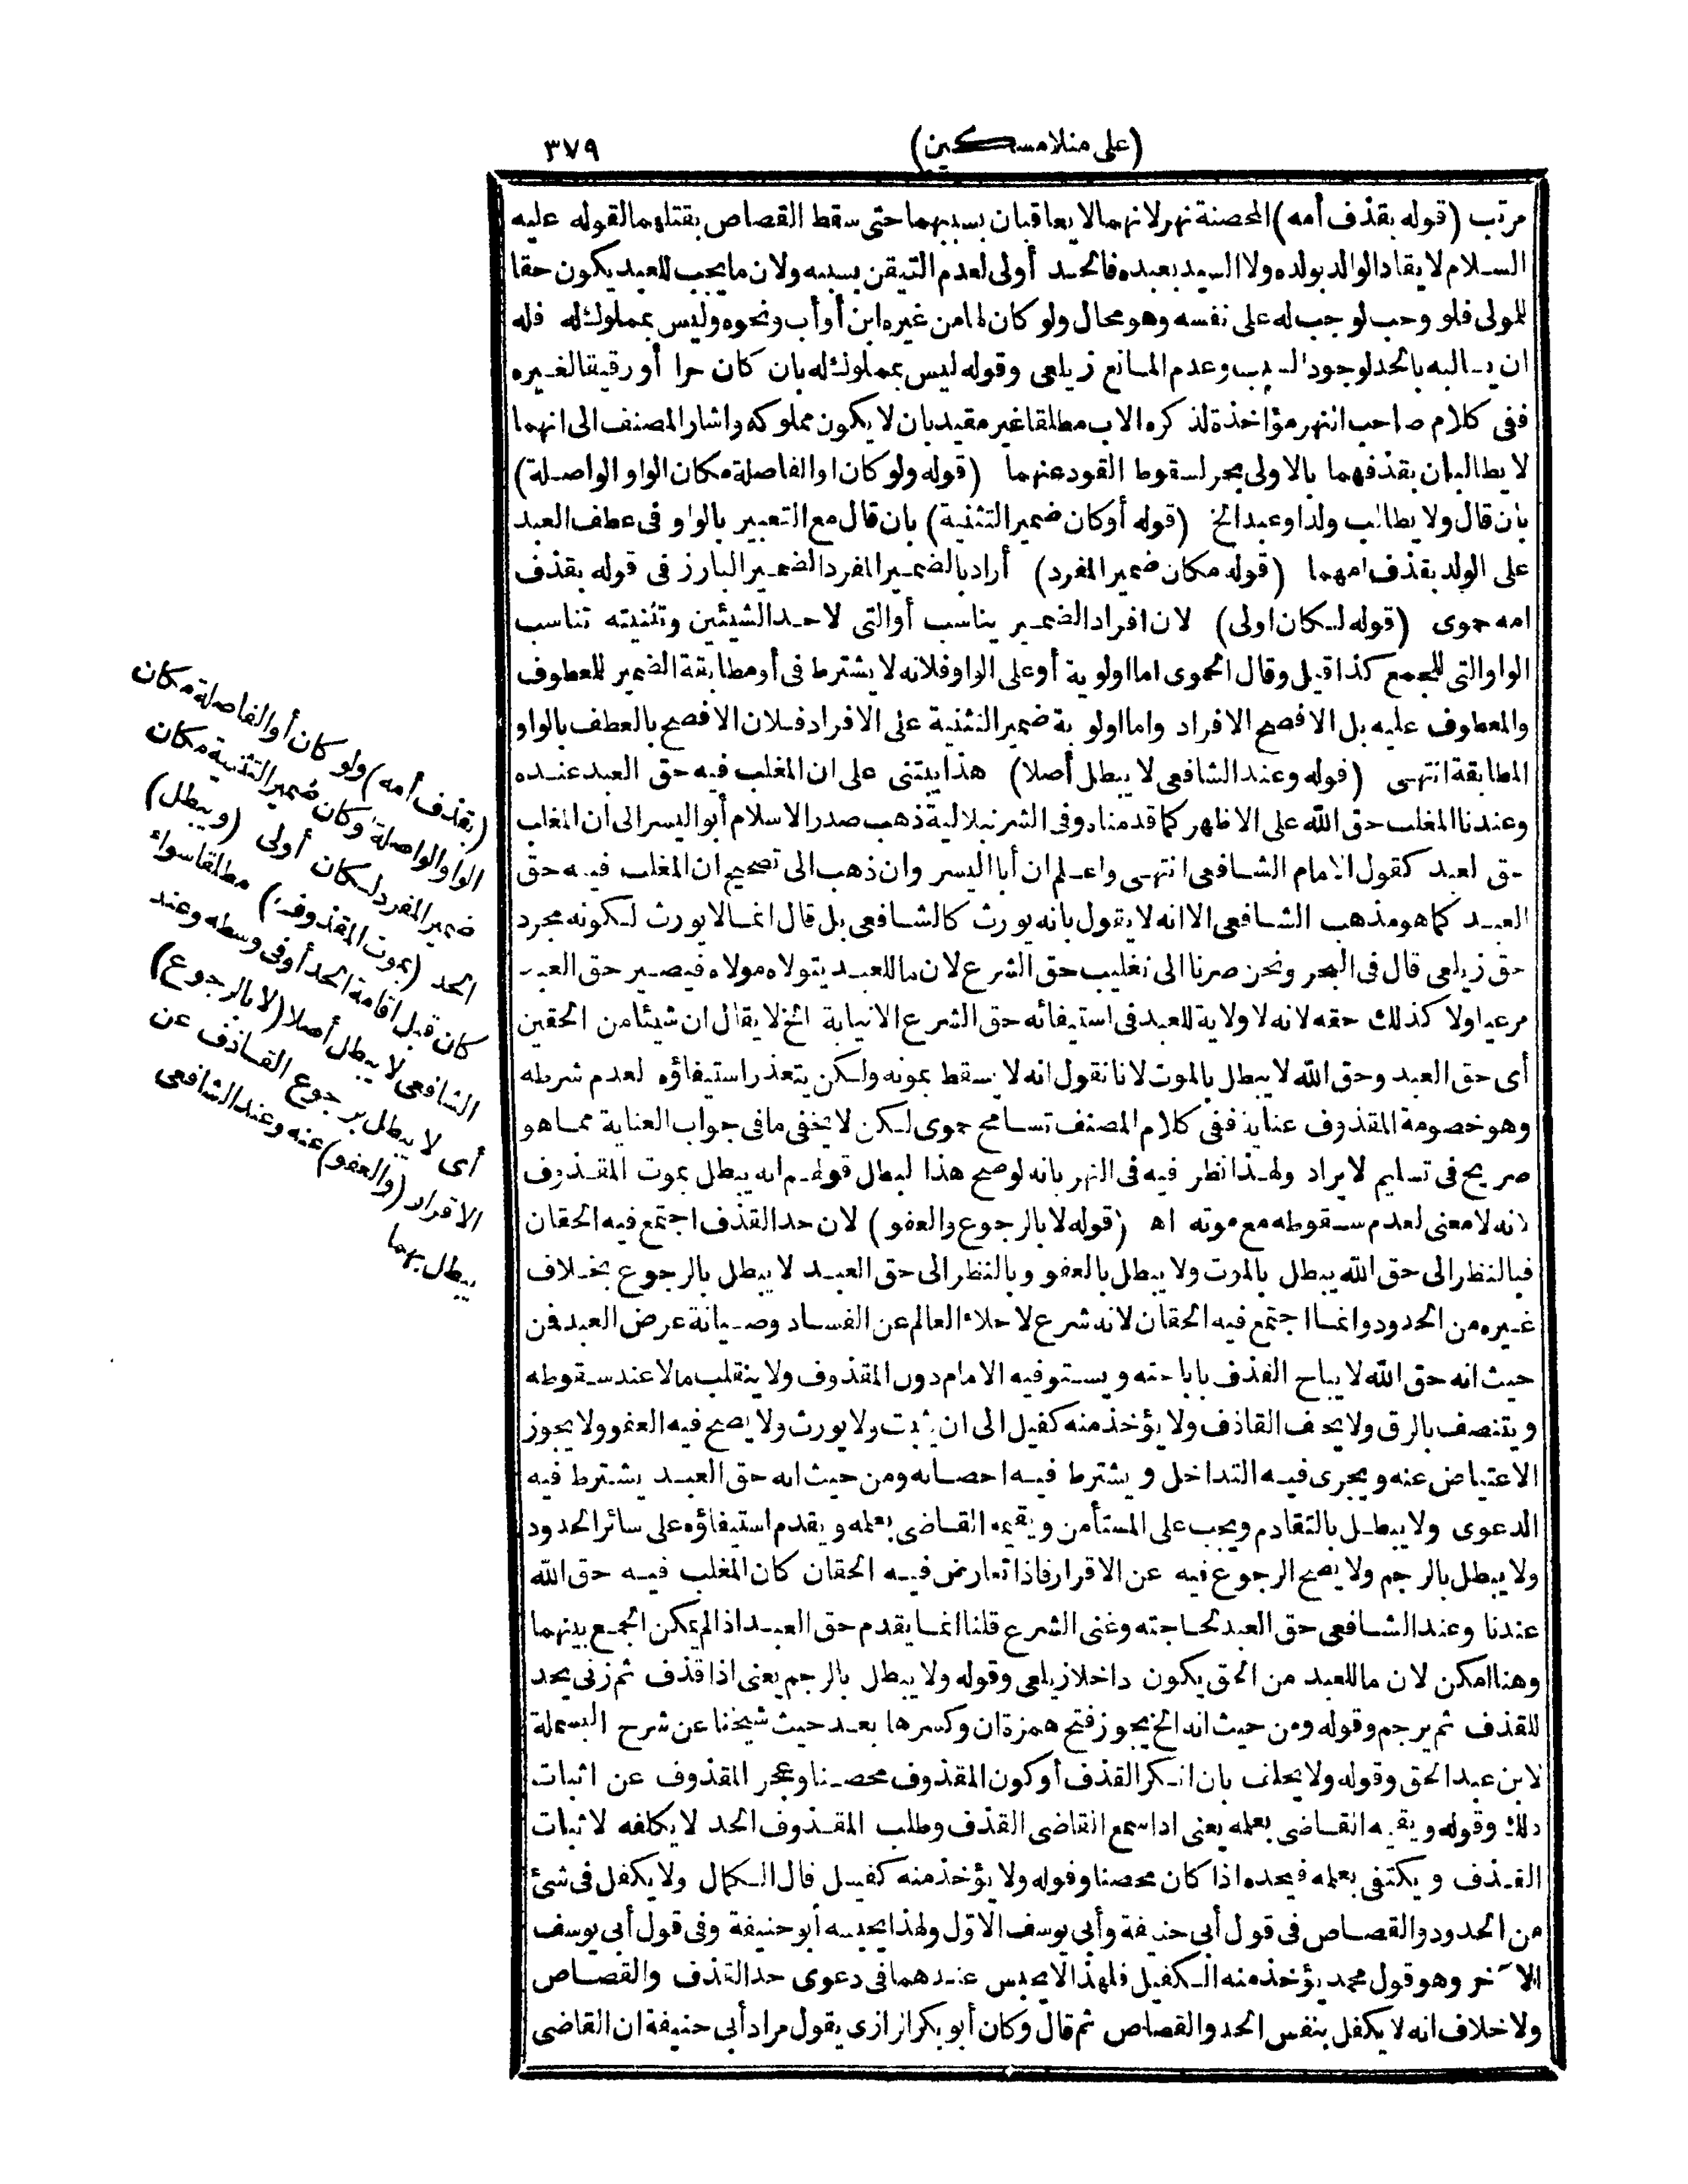 (على منلا مسكين) ٣٧٩
مرتب (قوله بقذف أمه) المحصنة نهر لانهما لا يعاقبان بسببهما حتى سقط القصاص بقتلهما لقوله عليه
السلام لا يقاد الوالد بولده ولا السيد بعبده فالحد أولى لعدم التيقن بسببه ولان ما يجب للعبد يكون حقا
للمولى فلو وجب لوجب له على نفسه وهو محال ولو كان لها من غيره ابن أو أب ونحوه وليس بمملوك له فله
ان يطالبه بالحد لوجود السبب وعدم المانع زيلعى وقوله ليس بمملوك له بان كان حرا أو رقيقا لغيره
ففى كلام صاحب النهر مؤاخذة لذكره الاب مطلقا غير مقيد بان لا يكون مملوكه واشار المصنف الى انهما
لا يطالبان بقذفهما بالاولى بحر لسقوط القود عنهما (قوله ولو كان او الفاصلة مكان الواو الواصلة)
بان قال ولا يطالب ولد او عبد الخ (قوله أو كان ضمير التثنية) بان قال مع التعبير بالواو فى عطف العبد
على الولد بقذف امهما (قوله مكان ضمير المفرد) أراد بالضمير المفرد الضمير البارز فى قوله بقذف
امه حموى (قوله لكان اولى) لان افراد الضمير يناسب أو التى لاحد الشيئين وتثنيته تناسب
الواو التى للجمع كذا قيل وقال الحموى اما اولوية أو على الواو فلانه لا يشترط فى أو مطابقة الضمير للمعطوف
والمعطوف عليه بل الافصح الافراد واما اولوية ضمير التثنية على الافراد فلان الافصح بالعطف بالواو
المطابقة انتهى (قوله وعند الشافعى لا يبطل أصلا) هذا يبتنى على ان المغلب فيه حق العبد عنده
وعندنا المغلب حق الله على الاظهر كما قدمناه وفى الشرنبلالية ذهب صدر الاسلام أبو اليسر الى ان المغلب
حق العبد كقول الامام الشافعى انتهى واعلم ان أبا اليسر وان ذهب الى تصحيح ان المغلب فيه حق
العبد كما هو مذهب الشافعى الا انه لا يقول بانه يورث كالشافعى بل قال انما لا يورث لكونه مجرد
حق زيلعى قال فى البحر ونحن صرنا الى تغليب حق الشرع لان ما للعبد يتولاه مولاه فيصير حق العبد
مرعيا ولا كذلك حقه لانه لا ولاية للعبد فى استيفائه حق الشرع الا نيابة الخ لا يقال ان شيئا من الحقين
أى حق العبد وحق الله لا يبطل بالموت لانا نقول انه لا يسقط بموته ولكن يتعذر استيفاؤه لعدم شرطه
وهو خصومة المقذوف عناية ففى كلام المصنف تسامح حموى لكن لا يخفى ما فى جواب العناية مما هو
صريح فى تسليم الايراد ولهذا نظر فيه فى النهر بانه لو صح هذا لبطل قولهم انه يبطل بموت المقذوف
لانه لا معنى لعدم سقوطه مع موته اه (قوله لا بالرجوع والعفو) لان حد القذف اجتمع فيه الحقان
فبالنظر الى حق الله يبطل بالموت ولا يبطل بالعفو وبالنظر الى حق العبد لا يبطل بالرجوع بخلاف
غيره من الحدود وانما اجتمع فيه الحقان لانه شرع لاخلاء العالم عن الفساد وصيانة عرض العبد فمن
حيث انه حق الله لا يباح القذف باباحته ويستوفيه الامام دون المقذوف ولا ينقلب مالا عند سقوطه
ويتنصف بالرق ولا يحلف القاذف ولا يؤخذ منه كفيل الى ان يثبت ولا يورث ولا يصح فيه العفو ولا يجوز
الاعتياض عنه ويجرى فيه التداخل ويشترط فيه احصانه ومن حيث انه حق العبد يشترط فيه
الدعوى ولا يبطل بالتقادم ويجب على المستأمن ويقيمه القاضى بعلمه ويقدم استيفاؤه على سائر الحدود
ولا يبطل بالرجم ولا يصح الرجوع فيه عن الاقرار فاذا تعارض فيه الحقان كان المغلب فيه حق الله
عندنا وعند الشافعى حق العبد لحاجته وغنى الشرع قلنا انما يقدم حق العبد اذا لم يمكن الجمع بينهما
وهنا امكن لان ما للعبد من الحق يكون داخلا زيلعى وقوله ولا يبطل بالرجم يعنى اذا قذف ثم زنى يحد
للقذف ثم يرجم وقوله ومن حيث انه الخ يجوز فتح همزة ان وكسرها بعد حيث شيخنا عن شرح البسملة
لابن عبد الحق وقوله ولا يحلف بان انكر القذف أو كون المقذوف محصنا وعجز المقذوف عن اثبات
ذلك وقوله ويقيمه القاضى بعلمه يعنى اذا سمع القاضى القذف وطلب المقذوف الحد لا يكلفه لاثبات
القذف ويكتفى بعلمه فيحده اذا كان محصنا وقوله ولا يؤخذ منه كفيل قال الكمال ولا يكفل فى شئ
من الحدود والقصاص فى قول أبى حنيفة وأبى يوسف الاول ولهذا يحبسه أبو حنيفة وفى قول أبى يوسف
الآخر وهو قول محمد يؤخذ منه الكفيل فلهذا لا يحبس عندهما فى دعوى حد القذف والقصاص
ولا خلاف انه لا يكفل بنفس الحد والقصاص ثم قال وكان أبو بكر الرازى يقول مراد أبى حنيفة ان القاضى
(بقذف أمه) ولو كان أو الفاصلة مكان
الواو الواصلة وكان ضمير التثنية مكان
ضمير المفرد لكان أولى (ويبطل)
الحد (بموت المقذوف) مطلقا سواء
كان قبل اقامة الحد أو فى وسطه وعند
الشافعى لا يبطل أصلا (لا بالرجوع)
أى لا يبطل برجوع القاذف عن
الاقرار (والعفو) عنه وعند الشافعى
يبطل بهما